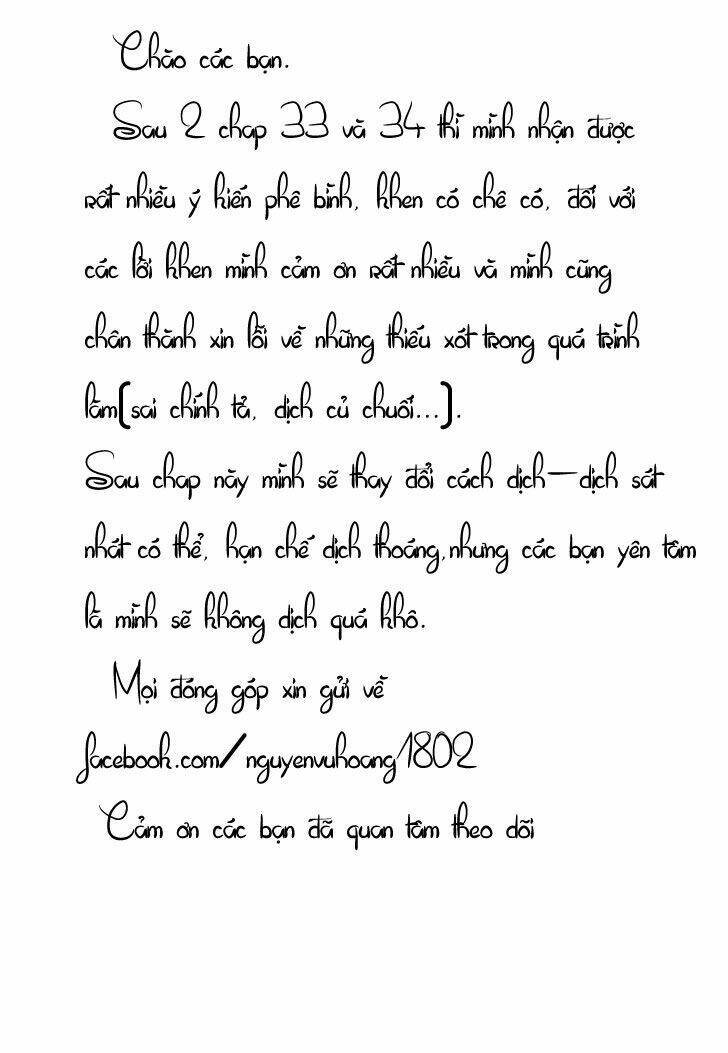 Chào các bạn.
Sau 2 chap 33 và 34 thì mình nhận được
rất nhiều ý kiến phê bình, khen có chê có, đối với
các lời khen mình cảm ơn rất nhiều và mình cũng
chân thành xin lỗi về những thiếu xót trong quá trình
làm(sai chính tả, dịch củ chuối...).
Sau chap này mình sẽ thay đổi cách dịch-dịch sát
nhất có thể, hạn chế dịch thoáng,nhưng các bạn yên tâm
là mình sẽ không dịch quá khô.
Mọi đóng góp xin gửi về
facebook.com/nguyenvuhoang1802
Cảm ơn các bạn đã quan tâm theo dõi